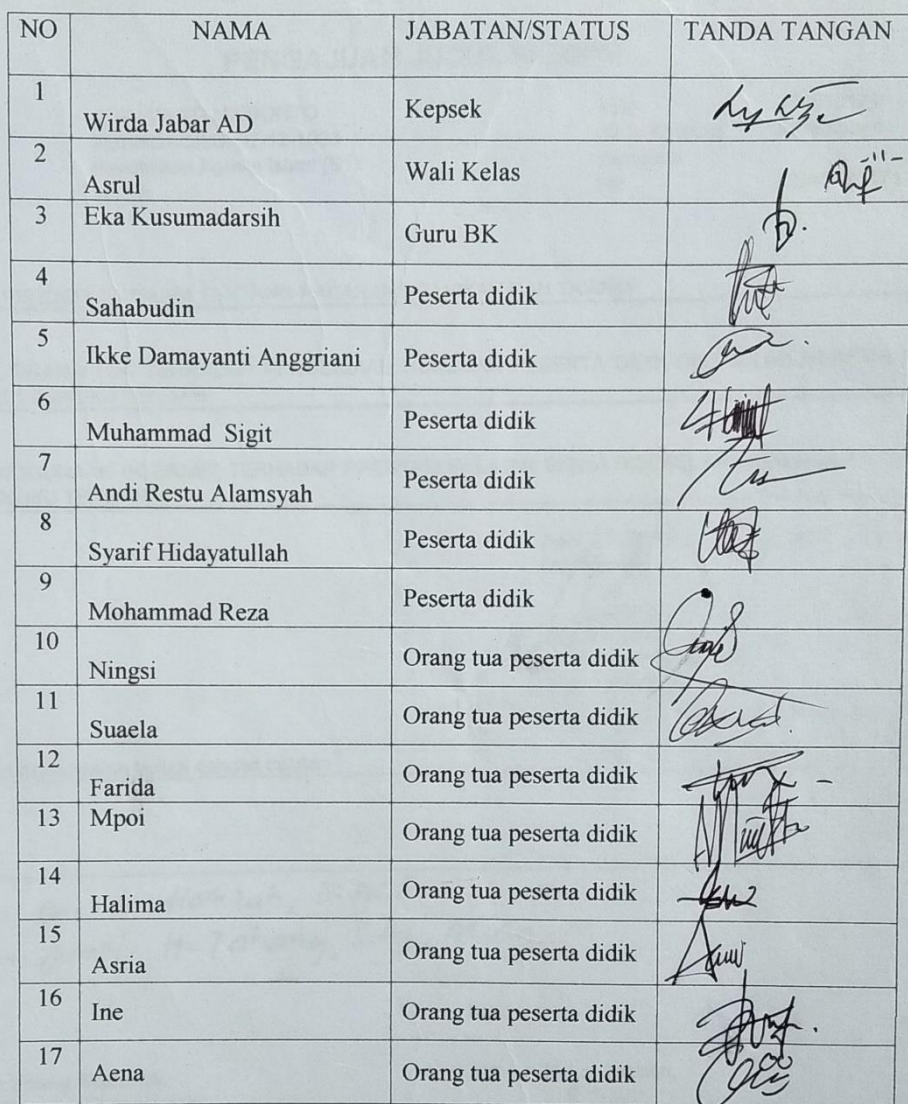 NO NAMA JABATAN/STATUS TANDA TANGAN
1 Wirda Jabar AD Kepsek
2 Asrul Wali Kelas
3 Eka Kusumadarsih Guru BK
4 Sahabudin Peserta didik
5 Ikke Damayanti Anggriani Peserta didik
6 Muhammad Sigit Peserta didik
7 Andi Restu Alamsyah Peserta didik
8 Syarif Hidayatullah Peserta didik
9 Mohammad Reza Peserta didik
10 Ningsi Orang tua peserta didik
11 Suaela Orang tua peserta didik
12 Farida Orang tua peserta didik
13 Mpoi Orang tua peserta didik
14 Halima Orang tua peserta didik
15 Asria Orang tua peserta didik
16 Ine Orang tua peserta didik
17 Aena Orang tua peserta didik